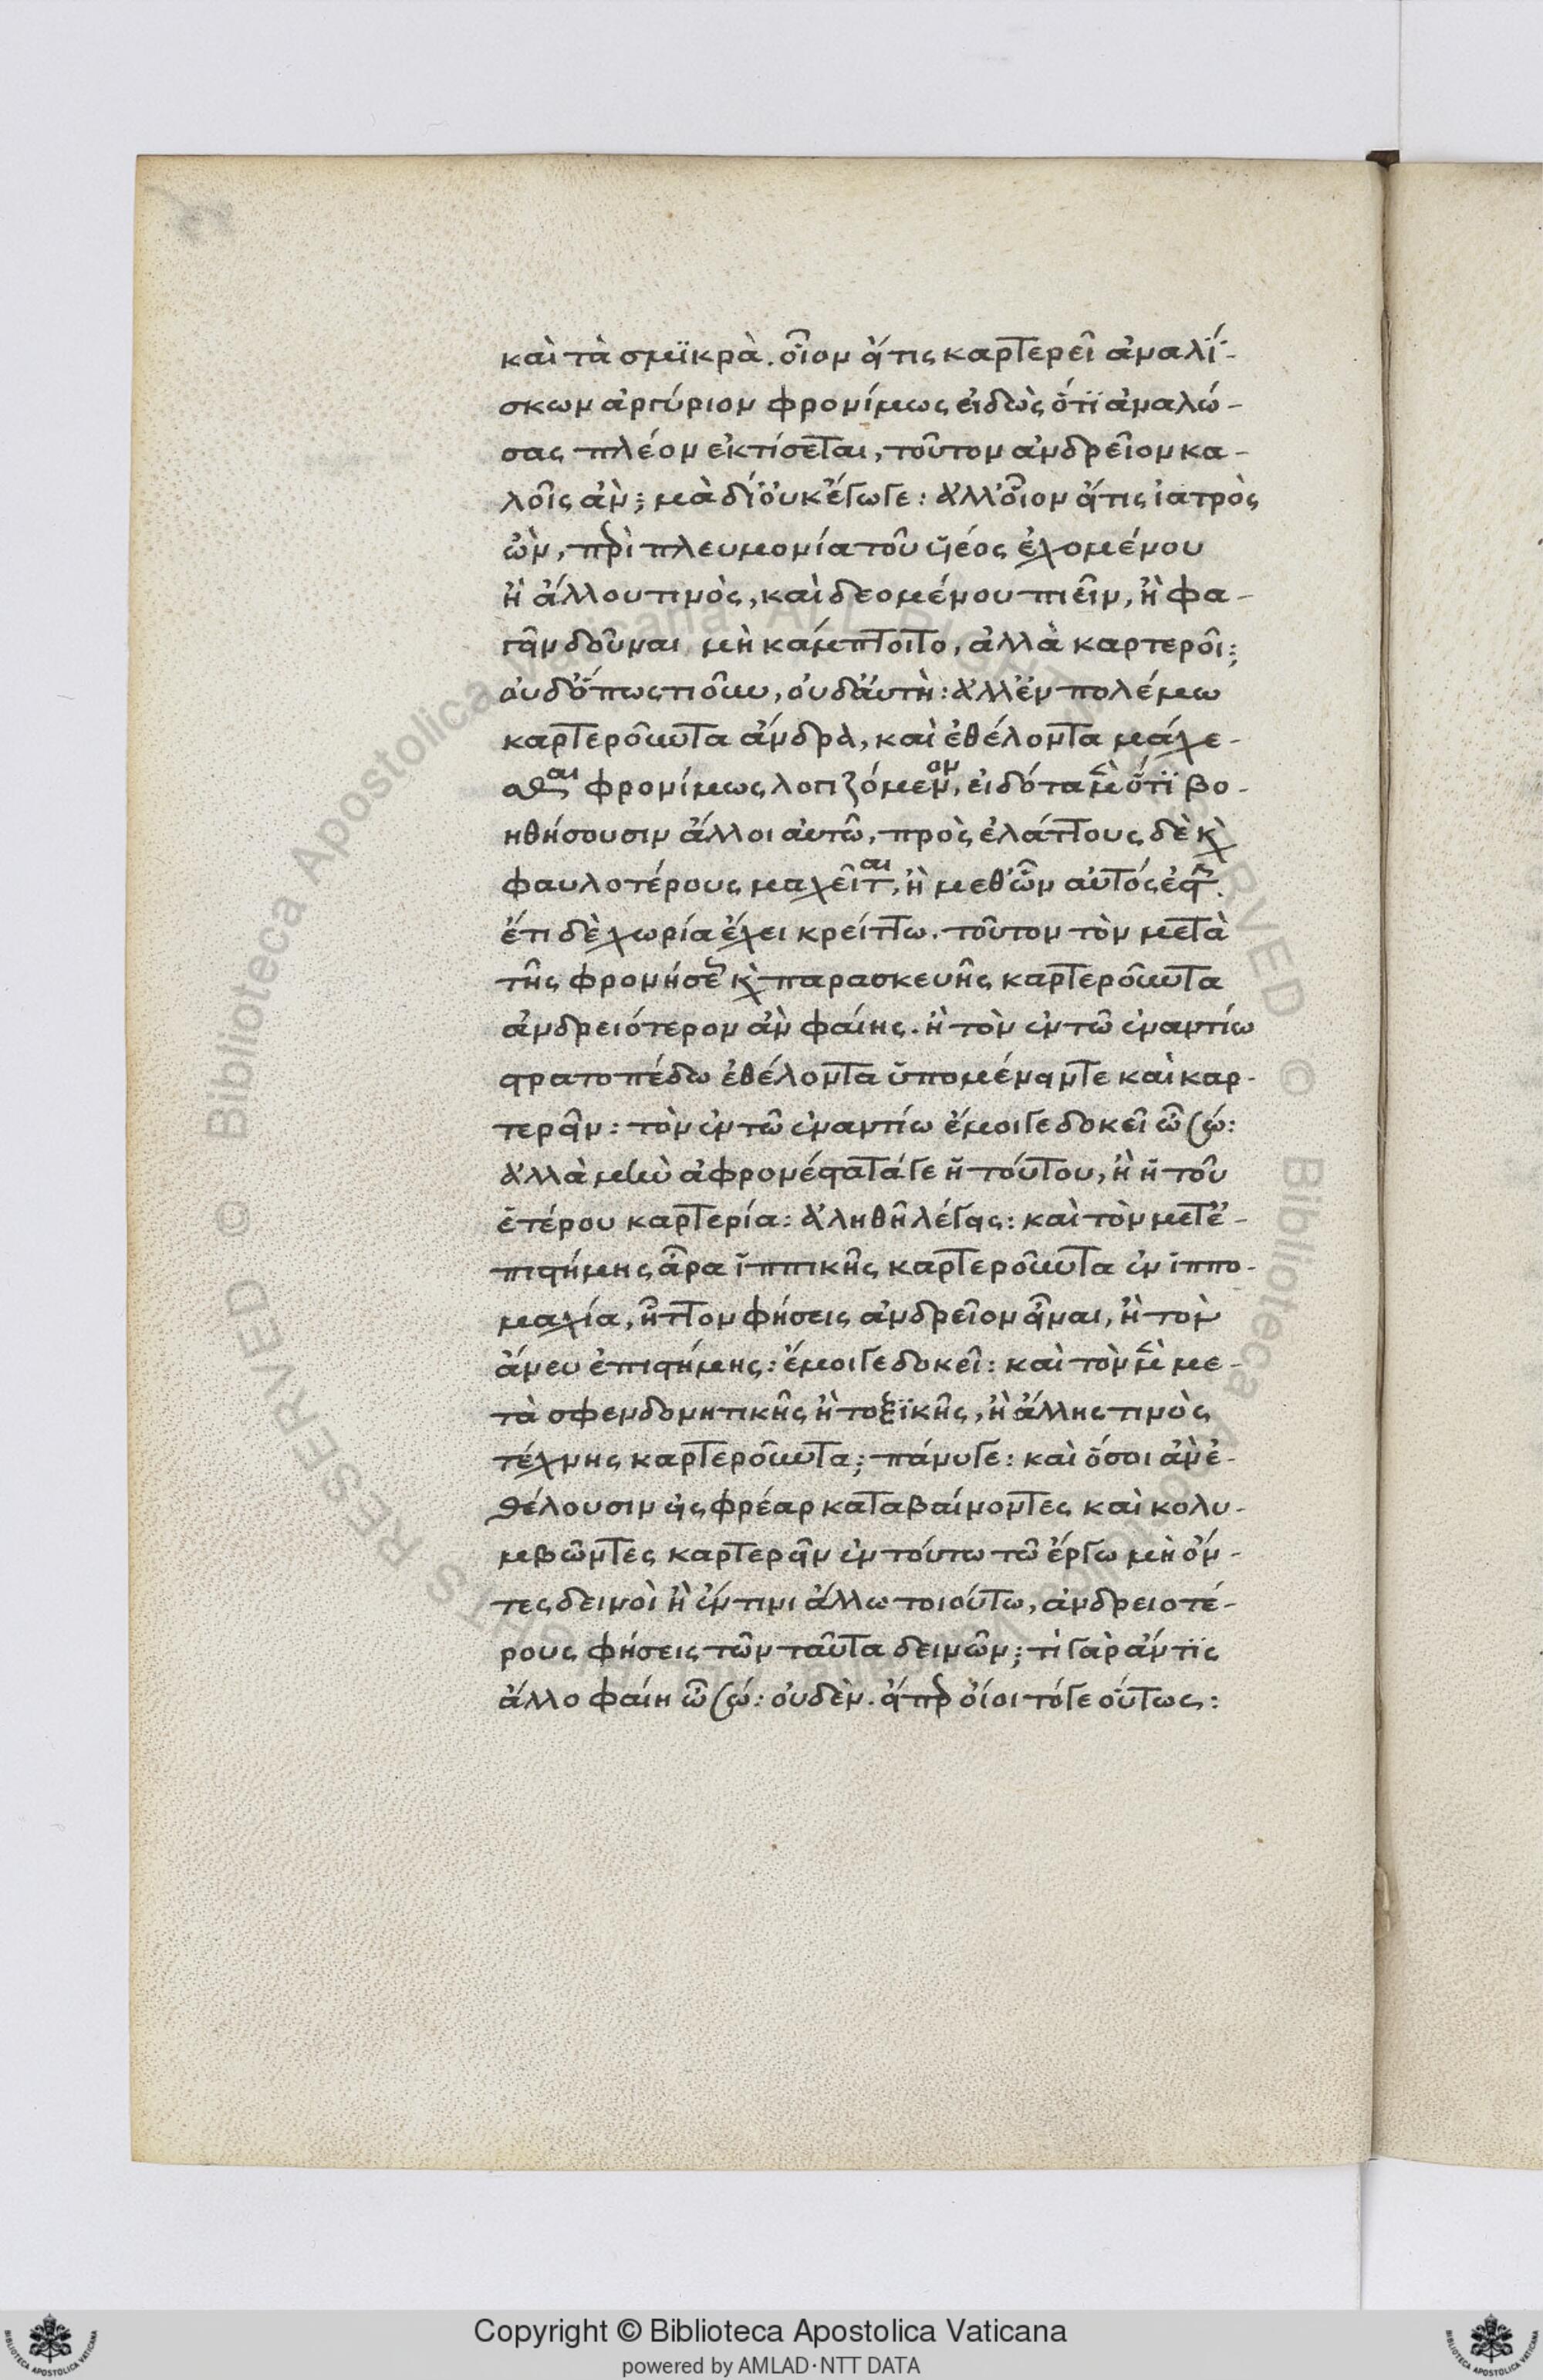 καὶ τὰ σμϊκρὰ. οἷον εἴ τις καρτερεῖ ἀναλί-
σκων ἀργύριον φρονίμως εἰδὼς ὅτϊ ἀναλώ-
σας πλέον ἐκτίσεται, τοῦτον ἀνδρεῖον κα-
λοῖς ἂν; μὰ δί' οὐκ ἔγωγε: ἀλλ' οἷον εἴ τις ἰατρὸς
ὢν, περὶ πλευμονία τοῦ ὑέος ἐχομένου
ἢ ἄλλου τινὸς, καὶ δεομένου πιεῖν, ἢ φα-
γεῖν δοῦναι μὴ κάμπτοιτο, ἀλλὰ καρτεροῖ;
οὐδ' ὅπως τιοῦν, οὐδ' αὐτὴ: ἀλλ' ἐν πολέμω
καρτεροῦντα ἄνδρα, καὶ ἐθέλοντα μάχε-
σθαι φρονίμως λογιζόμενον, εἰδότα μὲν ὅτϊ βο-
ηθήσουσιν ἄλλοι αὐτῶ, πρὸς ἐλάττους δὲ κ̀
φαυλοτέρους μαχεῖται, ἢ μεθ' ὧν αὐτός ἐστιν.
ἔτι δὲ χωρία ἔχει κρείττω. τοῦτον τὸν μετὰ
τῆς φρονήσεως κ̀ παρασκευῆς καρτεροῦντα
ἀνδρειότερον ἂν φαίης. ἢ τὸν ἐν τῶ ἐναντίω
στρατοπέδω ἐθέλοντα ὑπομένειν τε καὶ καρ-
τερεῖν: τὸν ἐν τῶ ἐναντίω ἔμοιγε δοκεῖ ὦ σώ:
ἀλλὰ μὴν ἀφρονέστατά γε ἡ τούτου, ἢ ἡ τοῦ
ἑτέρου καρτερία: ἀληθῆ λέγεις: καὶ τὸν μετ' ἐ-
πιστήμης ἄρα ἱππικῆς καρτεροῦντα ἐν ἱππο-
μαχία, ἧττον φήσεις ἀνδρεῖον εἶναι, ἢ τὸν
ἄνευ ἐπιστήμης: ἔμοιγε δοκεῖ: καὶ τὸν μὲν με-
τὰ σφενδονητικῆς ἢ τοξϊκῆς, ἢ ἄλλης τινὸς
τέχνης καρτεροῦντα; πάνυ γε: καὶ ὅσοι ἂν ἐ-
θέλουσιν εἰς φρέαρ καταβαίνοντες καὶ κολυ-
μβῶντες καρτερεῖν ἐν τούτω τῶ ἔργω μὴ ὄν-
τες δεινοὶ ἢ ἔν τινι ἄλλω τοιούτω, ἀνδρειοτέ-
ρους φήσεις τῶν ταῦτα δεινῶν; τὶ γὰρ ἄν τϊς
ἄλλο φαίη ὦ σώ: οὐδὲν. εἴπερ οἴοιτό γε οὕτως:
Copyright © Biblioteca Apostolica Vaticana
powered by AMLAD·NTT DATA